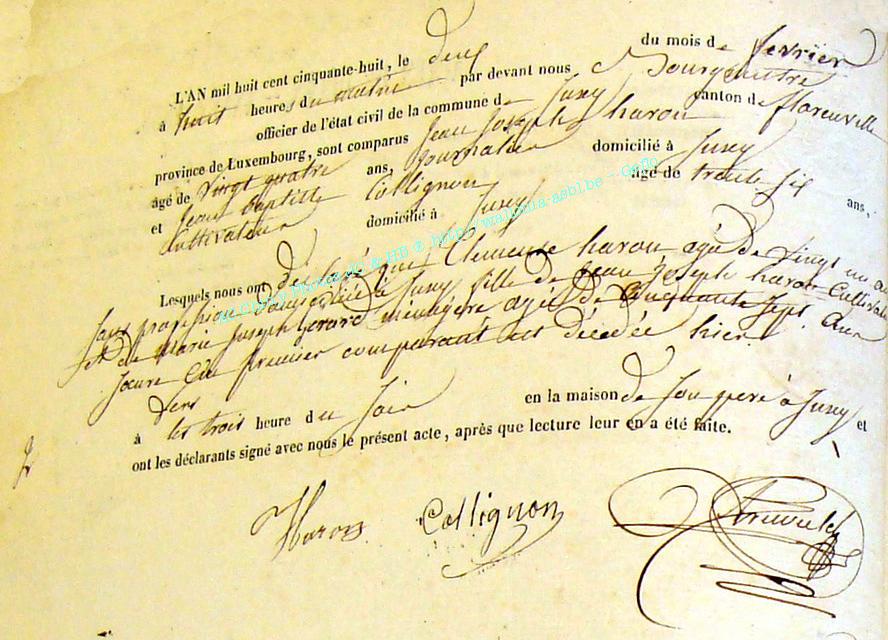 L'AN mil huit cent cinquante-huit, le deux du mois de fevrier
à huit heures du matin par devant nous Bourgmestre
officier de l'état civil de la commune de Juxey canton de florenville
province de Luxembourg, sont comparus Jean Joseph haron
âgé de vingt quatre ans, Journalier domicilié à Juxey
et Jean baptiste Collignon âgé de trente six ans,
Cultivateur domicilié à Juxey
Lesquels nous ont déclaré que Clemence haron agée de vingt un ans
sans profession domiciliée à Juxey fille de Jean joseph haron Cultivateur
et de Marie joseph Gerard ménagère agée de Cinquante sept ans
soeure du premier comparant est décedée hier
vers
à les trois heure du soir en la maison de son pere à Juxey et
ont les déclarants signé avec nous le présent acte, après que lecture leur en a été faite.
Haron Collignon